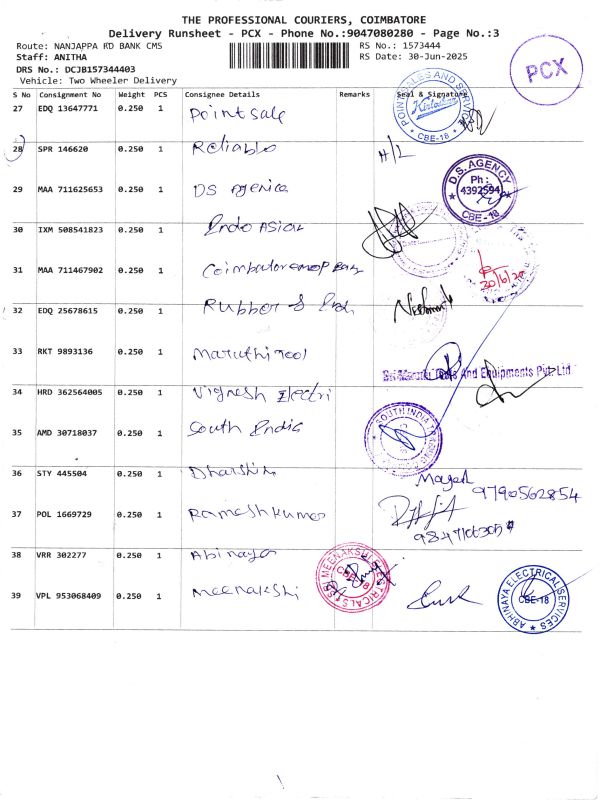 THE PROFESSIONAL COURIERS, COIMBATORE
Delivery Runsheet - PCX - Phone No.:9047080280 - Page No.:3
Route: NANJAPPA RD BANK CMS RS No.: 1573444
Staff: ANITHA RS Date: 30-Jun-2025
DRS No.: DCJB157344403
Vehicle: Two Wheeler Delivery
PCX
S No Consignment No Weight PCS Consignee Details Remarks Seal & Signature
27 EDQ 13647771 0.250 1 Point sale
POINT SALES AND SERVICE CBE-18
28 SPR 146620 0.250 1 Reliable
29 MAA 711625653 0.250 1 DS Agenice
D.S. AGENCY Ph: 4392594 CBE-18
30 IXM 508541823 0.250 1 Endo Asian
31 MAA 711467902 0.250 1 Coimbatore
30/6/20
32 EDQ 25678615 0.250 1 Rubber & Ind.
33 RKT 9893136 0.250 1 Maruthi Tool
And Equipments Pvt. Ltd
34 HRD 362564005 0.250 1 Vignesh Electri
35 AMD 30718037 0.250 1 South India
SOUTH INDIA
36 STY 445504 0.250 1 Dharshin
9790562854
37 POL 1669729 0.250 1 Rameshkumar
38 VRR 302277 0.250 1 Abinaya
39 VPL 953068409 0.250 1 Meenakshi
SRI MEENAKSHI ELECTRICALS CBE-18
ABHINAYA ELECTRICAL SERVICES CBE-18